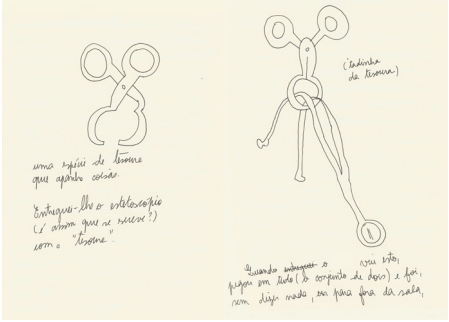 uma espécie de tesoura
que apanha coisas.
Entreguei-lhe o estetoscópio
(é assim que se escreve?)
com o "tesoura".
(tadinha
da tesoura)
Quando entreguei o viu isto,
pegou em tudo (o conjunto de dois) e foi,
sem dizer nada, para fora da sala,